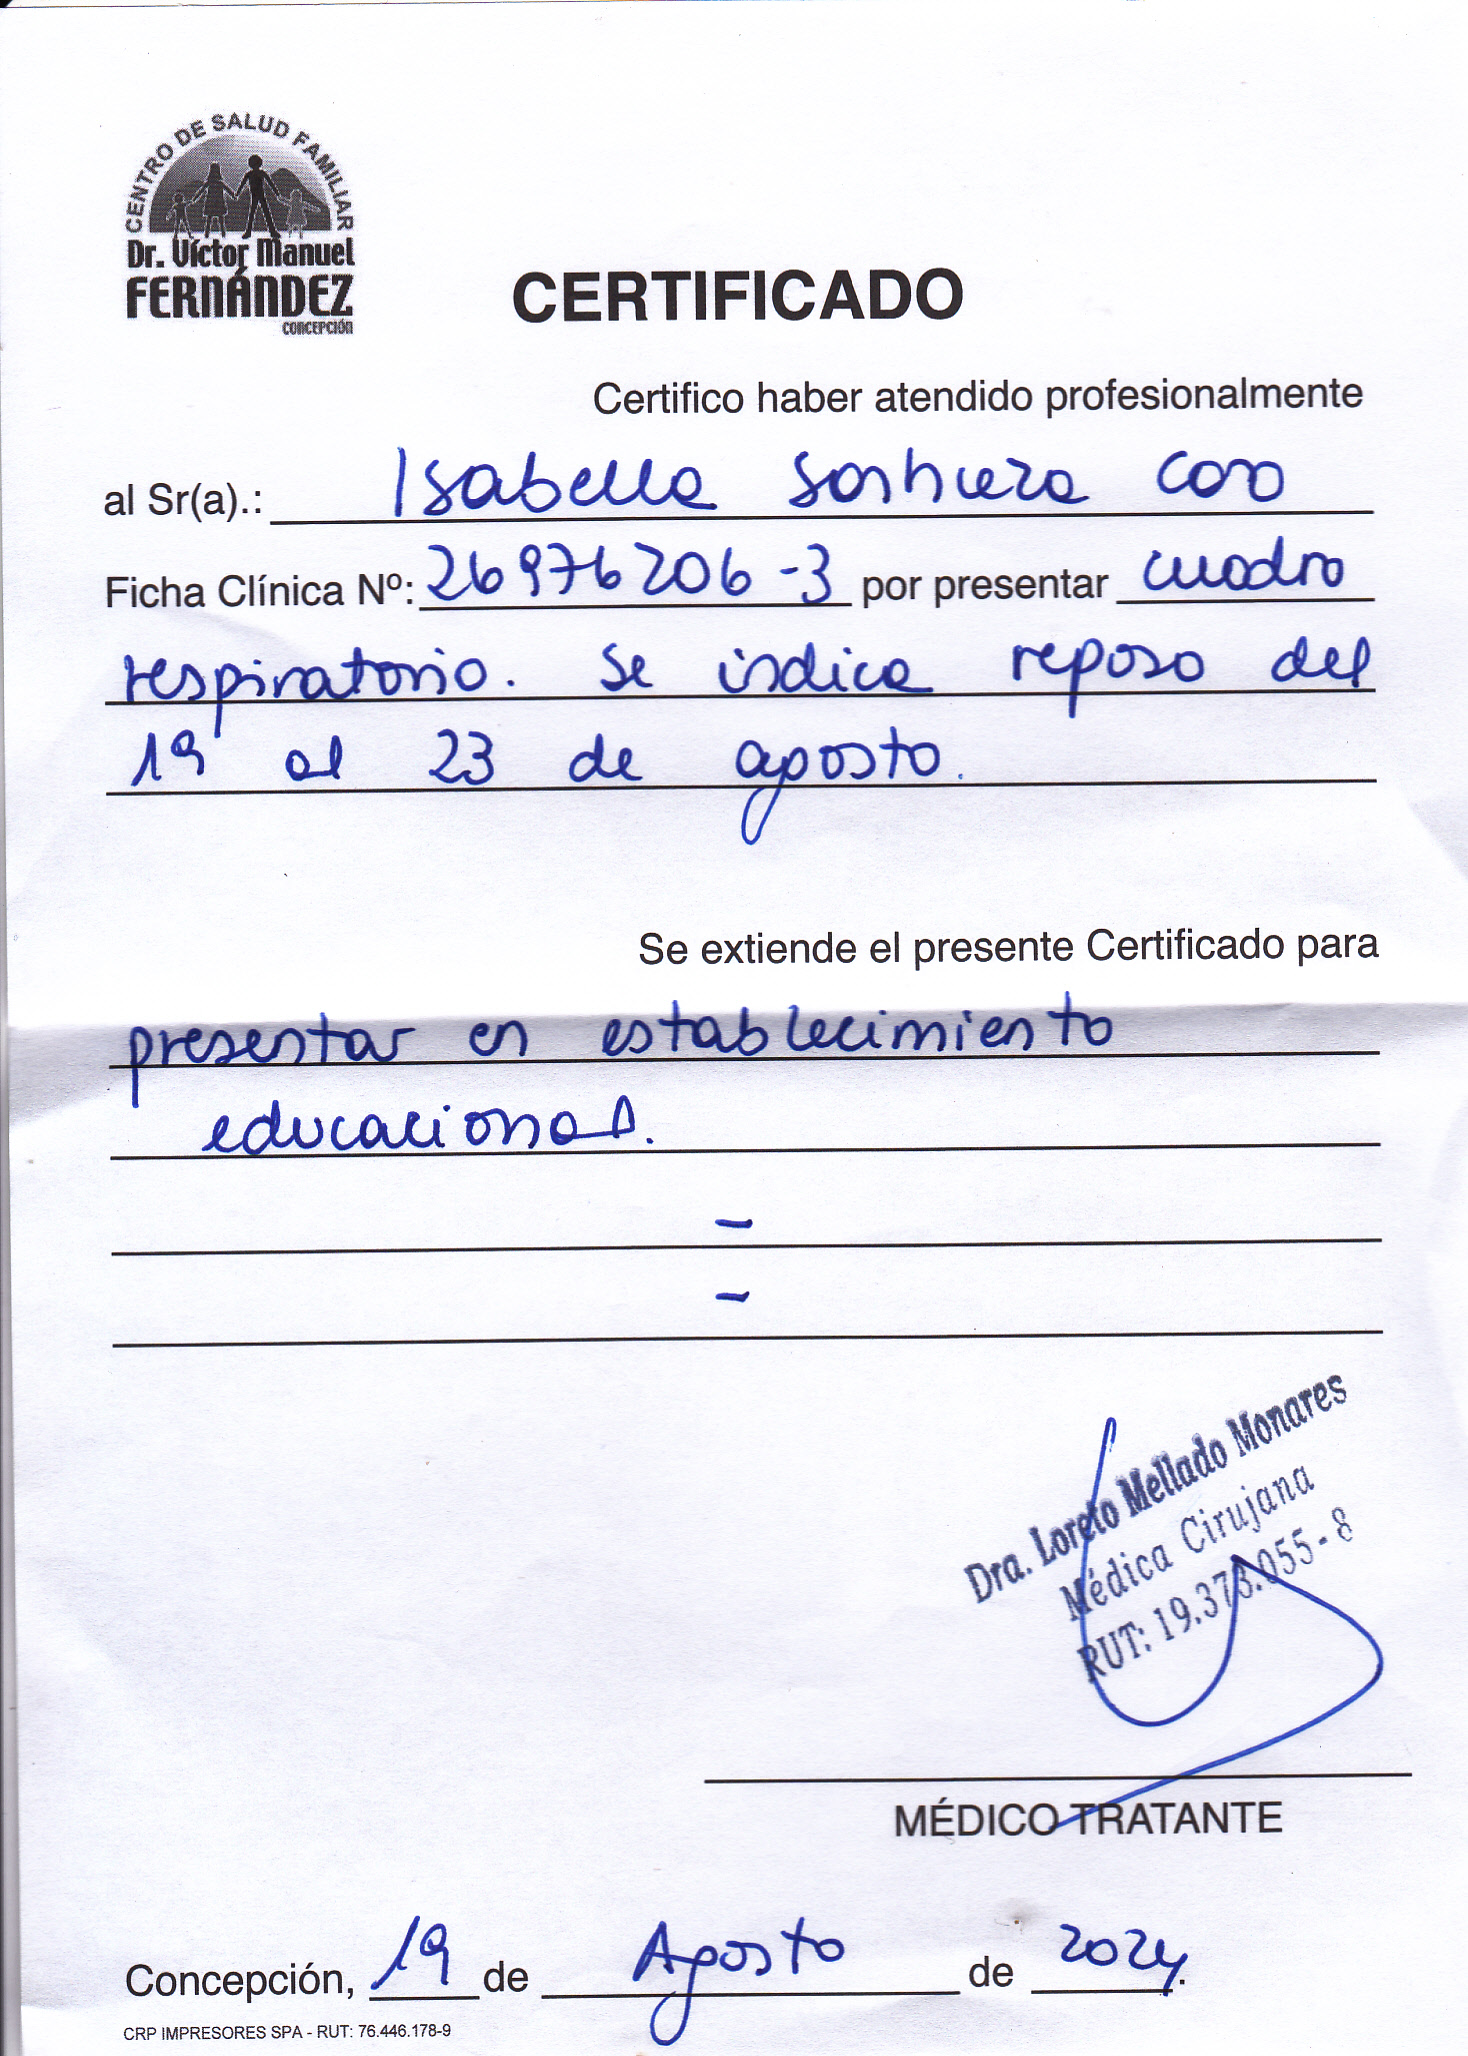 CENTRO DE SALUD FAMILIAR
Dr. Víctor Manuel
FERNÁNDEZ
CONCEPCIÓN
CERTIFICADO
Certifico haber atendido profesionalmente
al Sr(a).: Isabella
Ficha Clínica Nº: 26976206-3 por presentar cuadro
respiratorio. Se indica reposo del
19 al 23 de agosto.
Se extiende el presente Certificado para
presentar en establecimiento
educacional.
-
-
Dra. Loreto Mellado Monares
Médica Cirujana
RUT: 19.373.055-8
MÉDICO TRATANTE
Concepción, 19 de Agosto de 2024.
CRP IMPRESORES SPA - RUT: 76.446.178-9